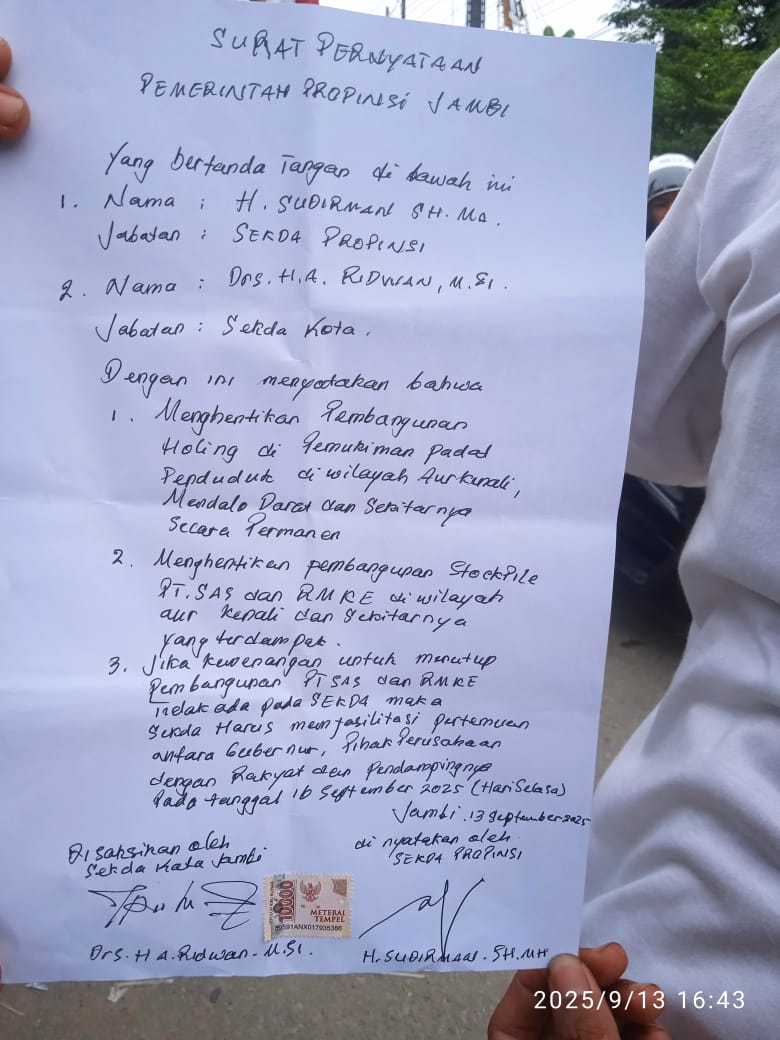 SURAT PERNYATAAN
PEMERINTAH PROPINSI JAMBI
Yang bertanda Tangan di bawah ini
1. Nama : H. SUDIRMAN SH. MA.
Jabatan : SEKDA PROPINSI
2. Nama : Drs. H.A. RIDWAN, M.SI.
Jabatan : Sekda Kota.
Dengan ini menyatakan bahwa
1. Menghentikan Pembangunan
Holing di Pemukiman padat
Penduduk di wilayah Aurkenali,
Mendalo Darat dan Sekitarnya
Secara Permanen
2. Menghentikan pembangunan StockPile
PT. SAS dan RMKE di wilayah
aur kenali dan Sekitarnya
yang terdampak.
3. Jika kewenangan untuk menutup
Pembangunan PT SAS dan RMKE
Tidak ada pada SEKDA maka
Sekda Harus memfasilitasi pertemuan
antara Gubernur, Pihak Perusahaan
dengan Rakyat dan Pendampingnya
Pada tanggal 16 September 2025 (Hari Selasa)
Jambi, 13 September 2025
Di saksikan oleh
Sekda Kota Jambi
di nyatakan oleh
SEKDA PROPINSI
10000
METERAI
TEMPEL
Drs. H A. Ridwan. M.SI.
H. SUDIRMAN. SH. MH
2025/9/13 16:43